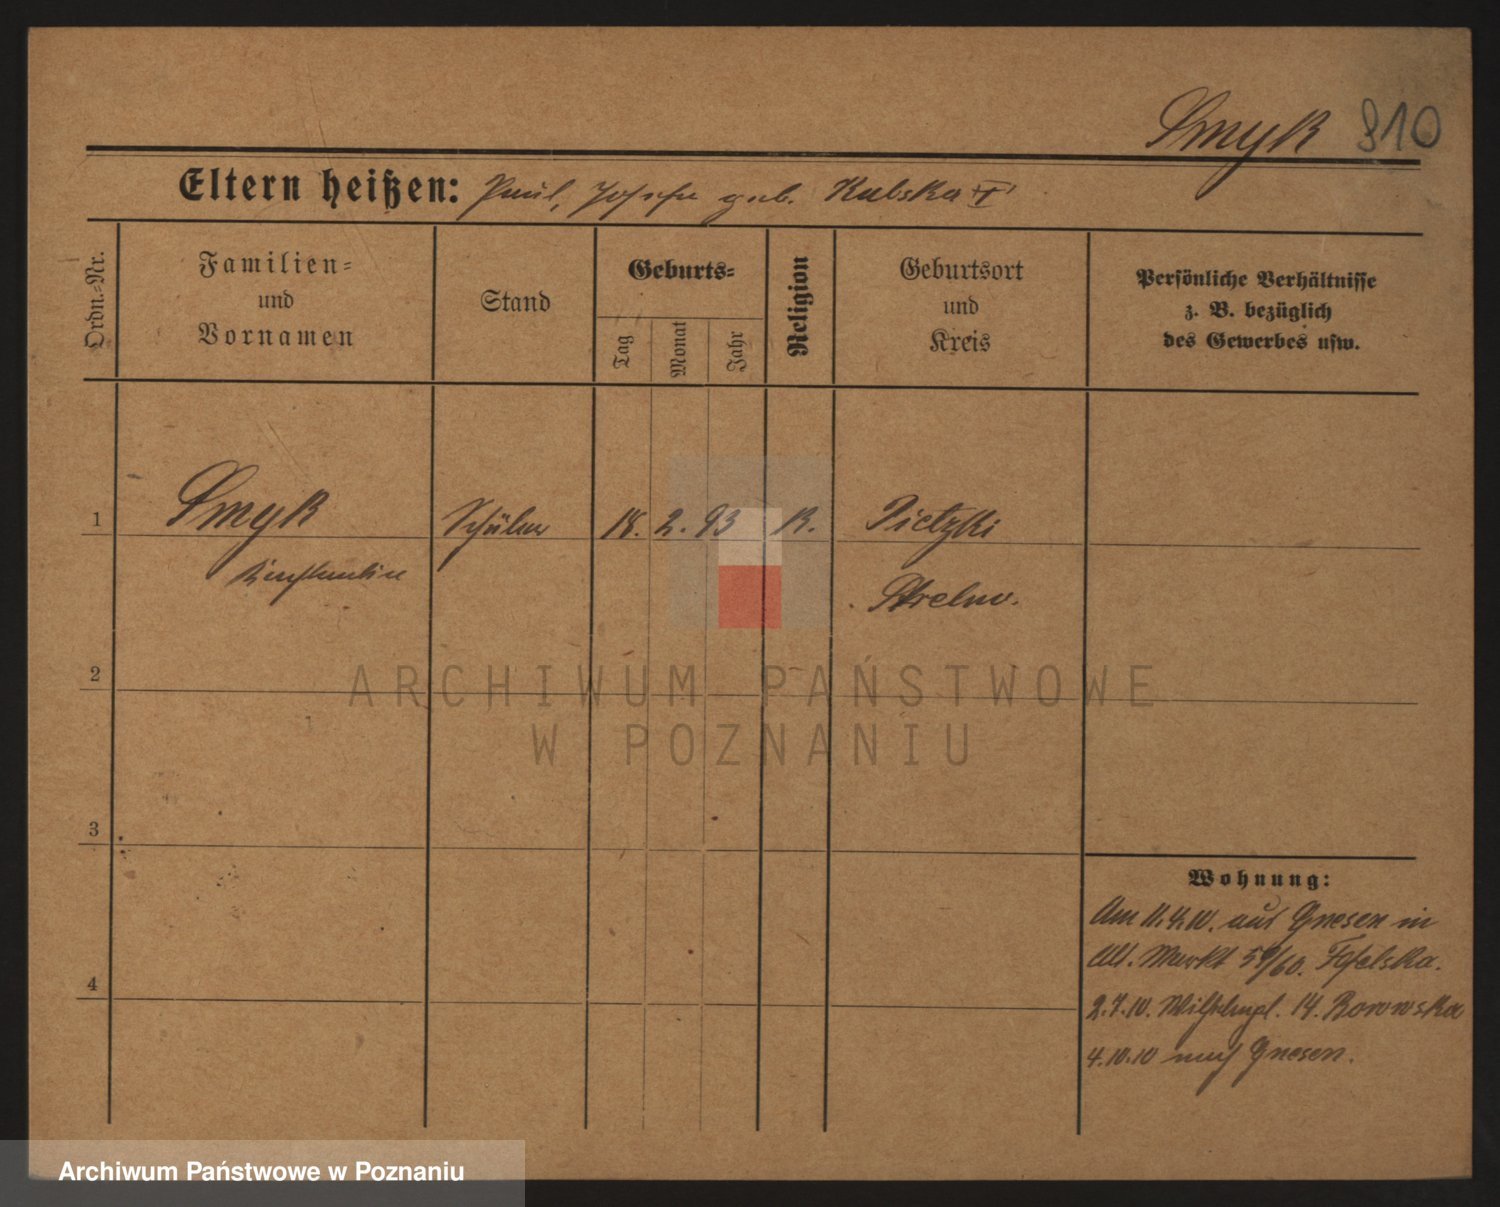 Smyk 910
Eltern heißen: Paul, Josefa geb. Kubska
Ordn.-Nr.
Familien-
und
Vornamen
Stand
Geburts-
Tag
Monat
Jahr
Religion
Geburtsort
und
Kreis
Persönliche Verhältnisse
z. B. bezüglich
des Gewerbes usw.
1 Smyk Schüler 18. 2. 93 K. Pietzki
Konstantin Strelno.
2
3
4
Wohnung:
Am 11.4.10. aus Gnesen in
Alt. Markt 59/60.
2.7.10. Wilhelmpl. 14. Borowska
4.10.10 nach Gnesen.
ARCHIWUM PAŃSTWOWE
W POZNANIU
Archiwum Państwowe w Poznaniu